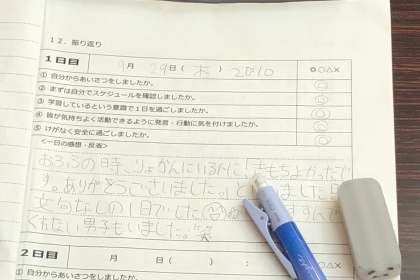 １２．振り返り
１日目 9月29日(木) 20:10 ◎○△×
① 自分からあいさつをしましたか。 ◎
② まずは自分でスケジュールを確認しましたか。 ◎
③ 学習しているという意識で１日を過ごしましたか。 ◎
④ 皆が気持ちよく活動できるように発言・行動に気を付けましたか。 ◎
⑤ けがなく安全に過ごしましたか。 ◎
<一日の感想・反省>
おふろの時、りょかんにいる人に「きもちよかったで
す。ありがとうございました。」と
なしの1日でした
くれない男子もいました。笑
２日目 月 日( ) : ◎○△×
① 自分からあいさつをしましたか。